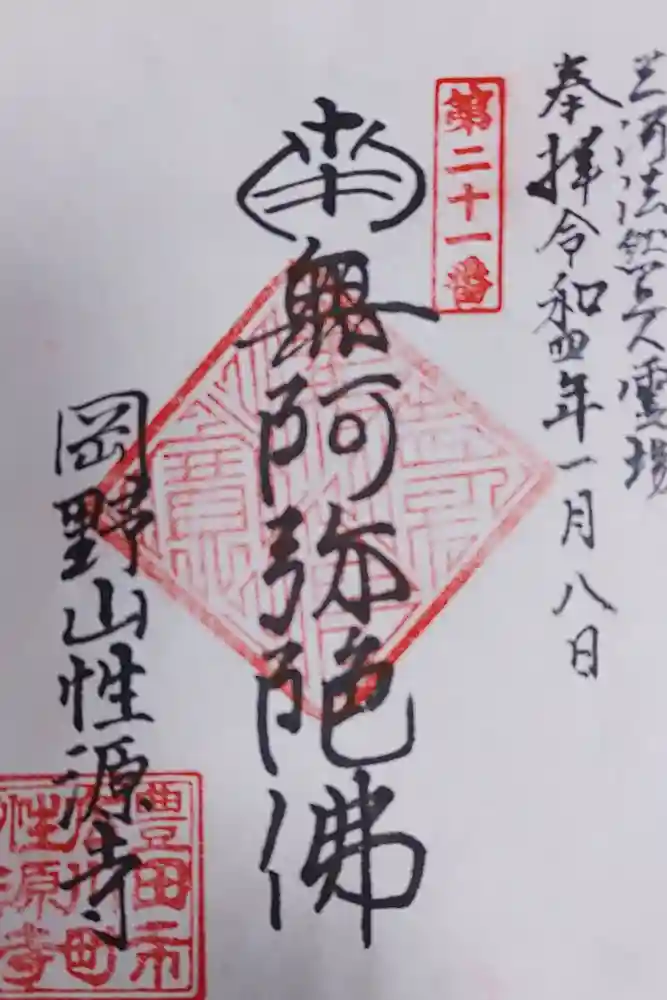 三河法然上人霊場
奉拝令和四年一月八日
第二十一番
南無阿弥陀佛
岡野山性源寺
豊田市
町
性源寺